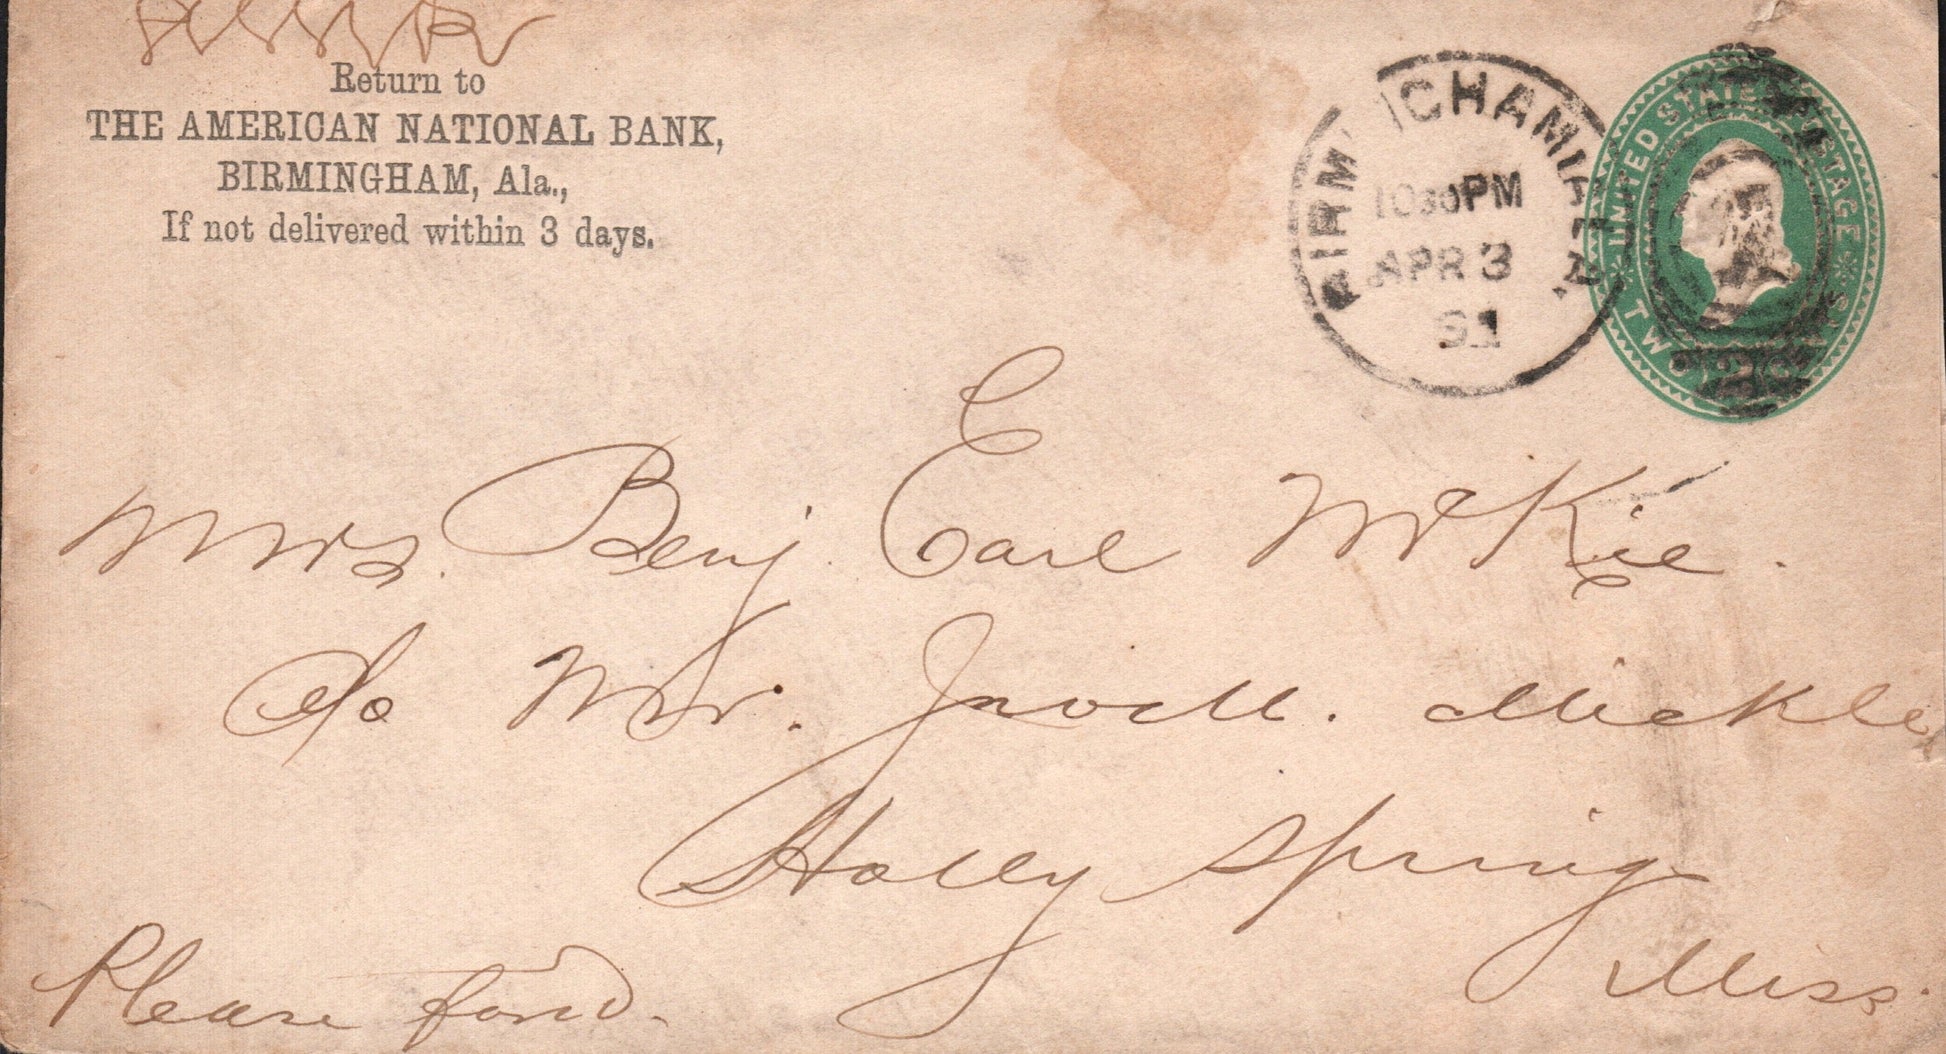 Return to
THE AMERICAN NATIONAL BANK,
BIRMINGHAM, Ala.,
If not delivered within 3 days.
BIRMINGHAM
1030PM
APR 3
91
UNITED STATES POSTAGE
TWO
2
Mrs. Benj. E. Earl McKie.
c/o Mr. M. Mickle
Holly Springs
Miss.
Please ford.